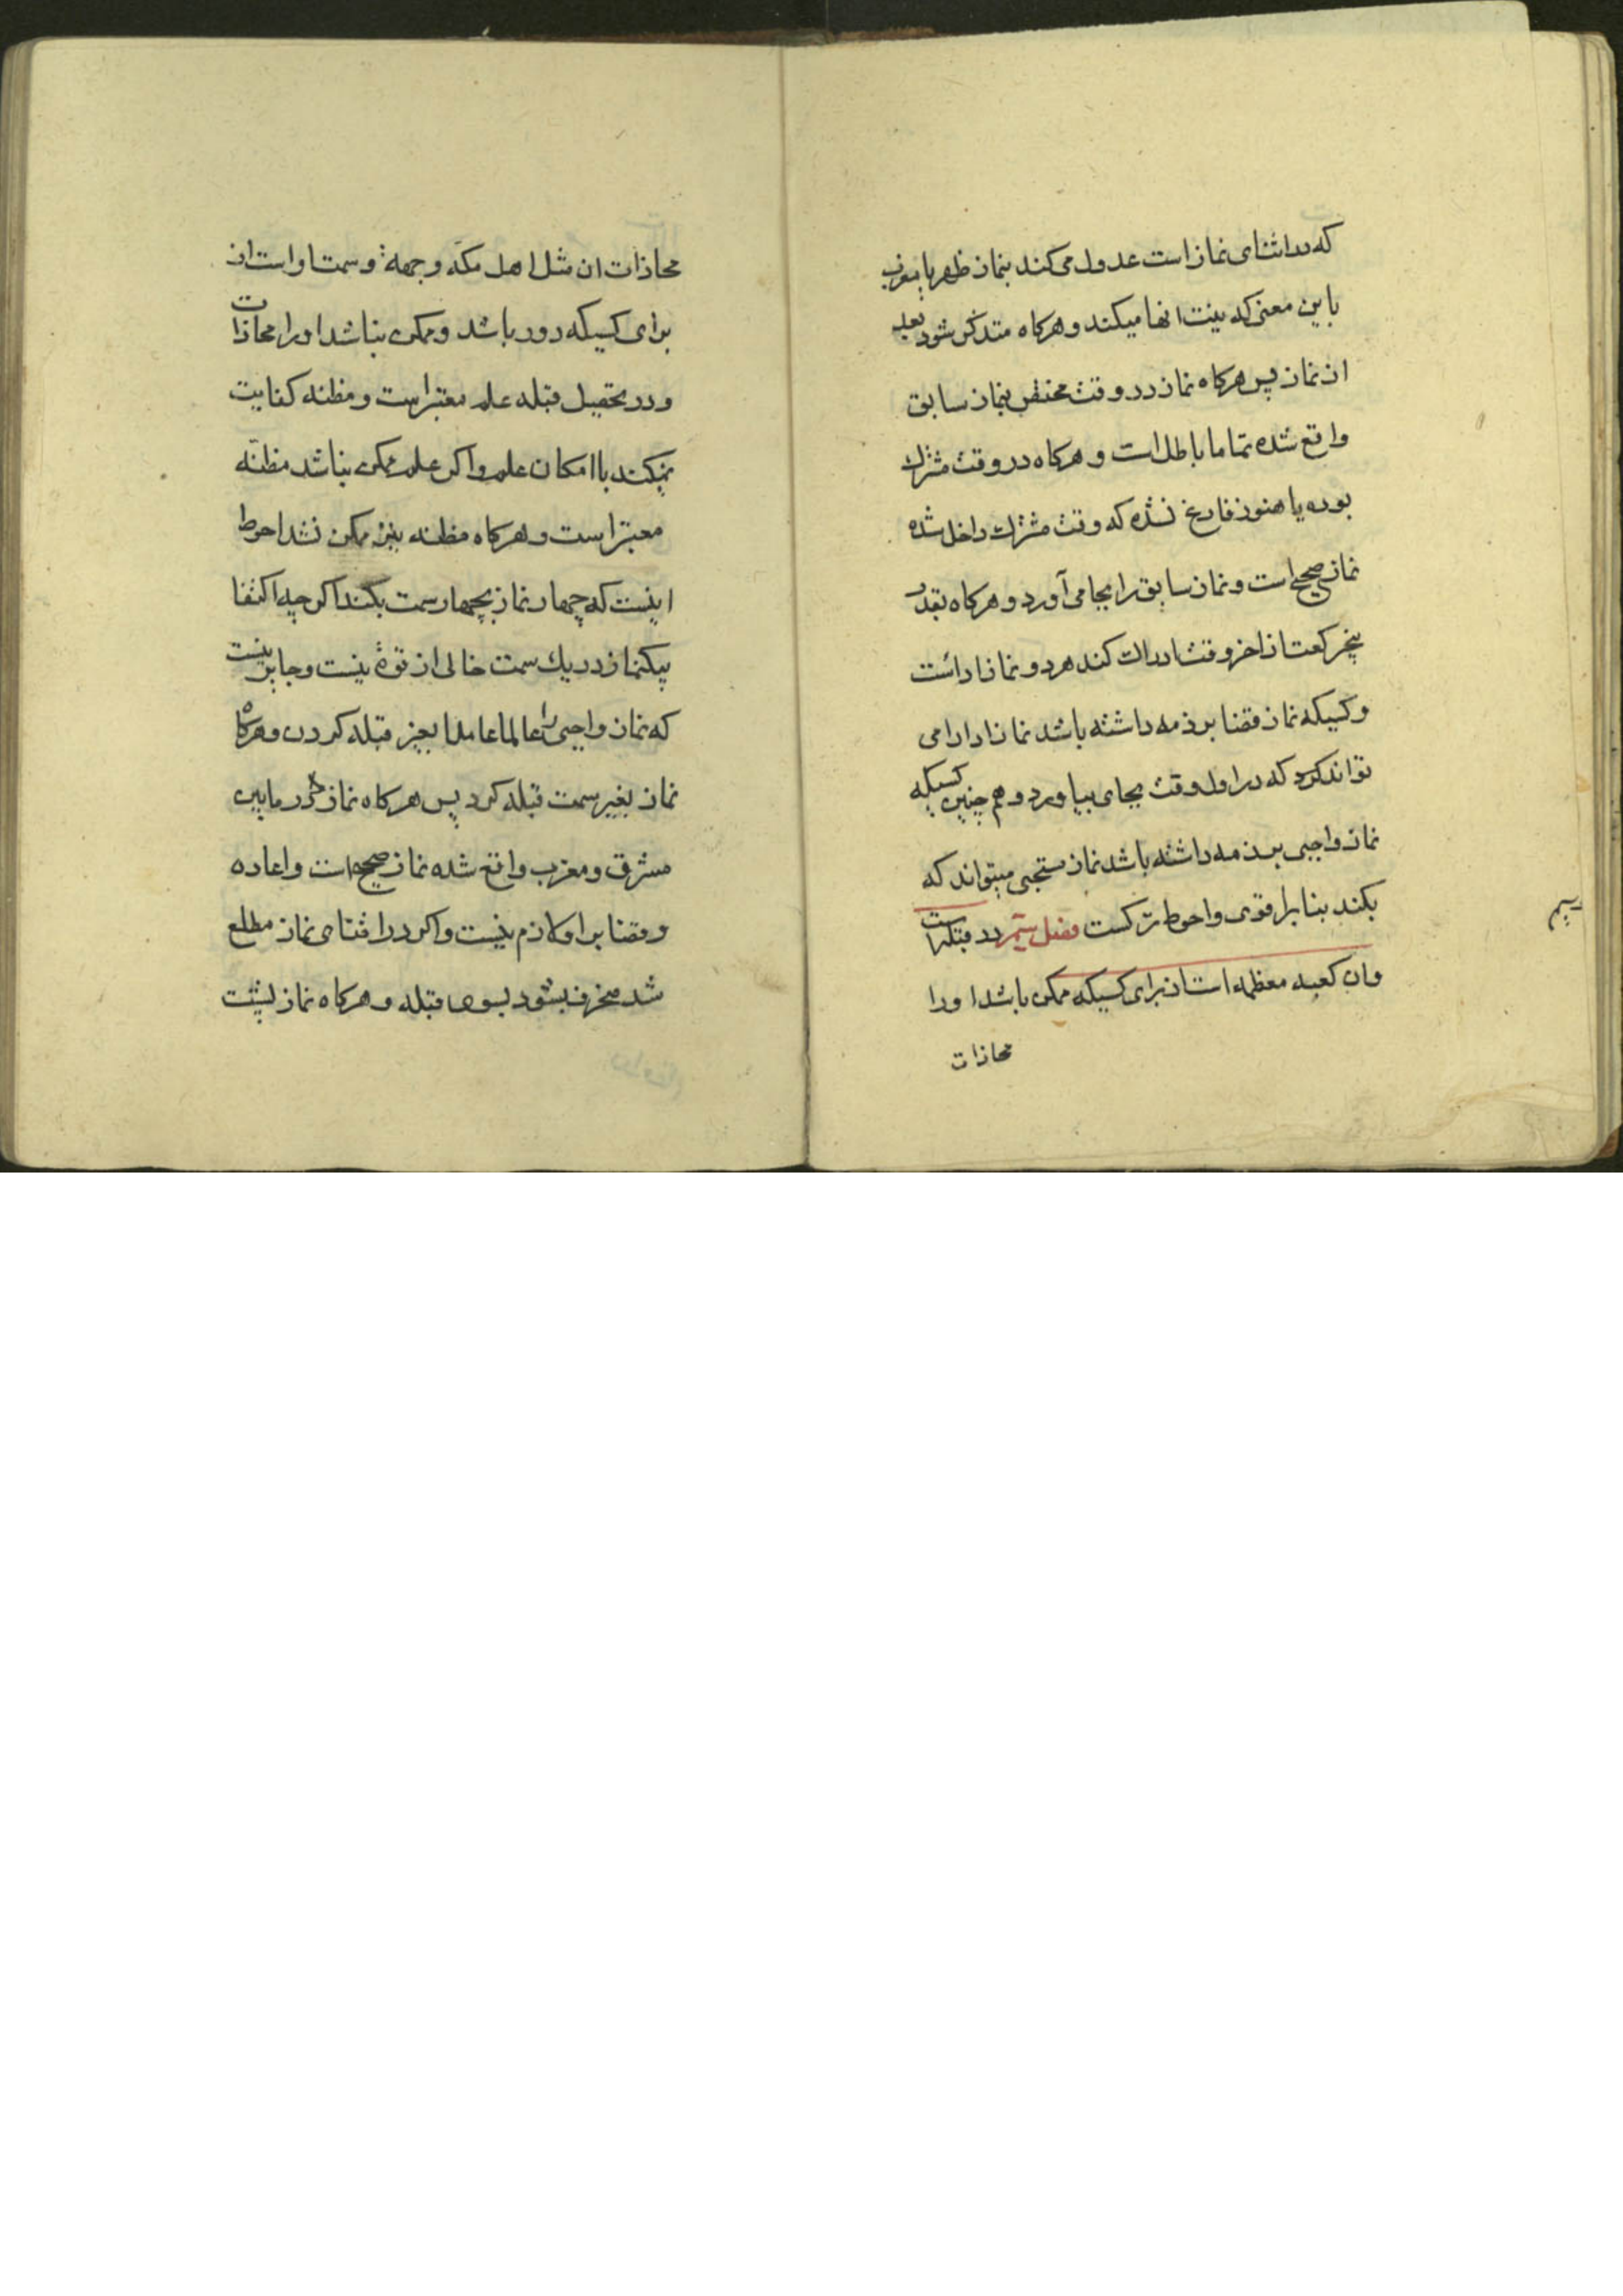 که در اثنای نماز است عدول می کند بنماز ظهر یا بمغرب
باین معنی که نیت انها میکند و هرکاه متذکر شود بعد
از نماز پس هرکاه نماز در وقت مختص بنماز سابق
واقع شده تماما باطل است و هرکاه در وقت مشترک
بوده یا هنوز فارغ نشده که وقت مشترک داخل شده
نماز صحیح است و نماز سابق را بجا می آورد و هرکاه بقدر
پنجرکعت از اخر وقت ادراک کند هر دو نماز ادا است
و کسیکه نماز قضا بر ذمه داشته باشد نماز ادا را می
تواند کرد که در اول وقت بجای بیاورد و هم چنین کسیکه
نماز واجبی بر ذمه داشته باشد نماز مستحبی میتواند که
بکند بنا بر اقوی و احوط ترکست فصل سیم در قبله است
و ان کعبه معظمه است از برای کسیکه ممکن باشد او را
محاذات
سیم
محاذات ان مثل اهل مکه و جهة و سمت او است از
برای کسیکه دور باشد و ممکن نباشد او را محاذات
و در تحصیل قبله علم معتبر است و مظنه کفایت
نمیکند با امکان علم و اکر علم ممکن نباشد مظنه
معتبر است و هرکاه مظنه نیز ممکن نشد احوط
اینست که چهار نماز بچهار سمت بکند اکر چه اکتفا
بیکنماز در یک سمت خالی از قوة نیست و جایز نیست
که نماز واجبی را عالما عامدا بغیر قبله کردن و هرکاه
نماز بغیر سمت قبله کرد پس هرکاه نماز در مابین
مشرق و مغرب واقع شده نماز صحیح است و اعاده
و قضا بر او لازم نیست و اکر در اثنای نماز مطلع
شد منحرف بشود بسوی قبله و هرکاه نماز بپشت